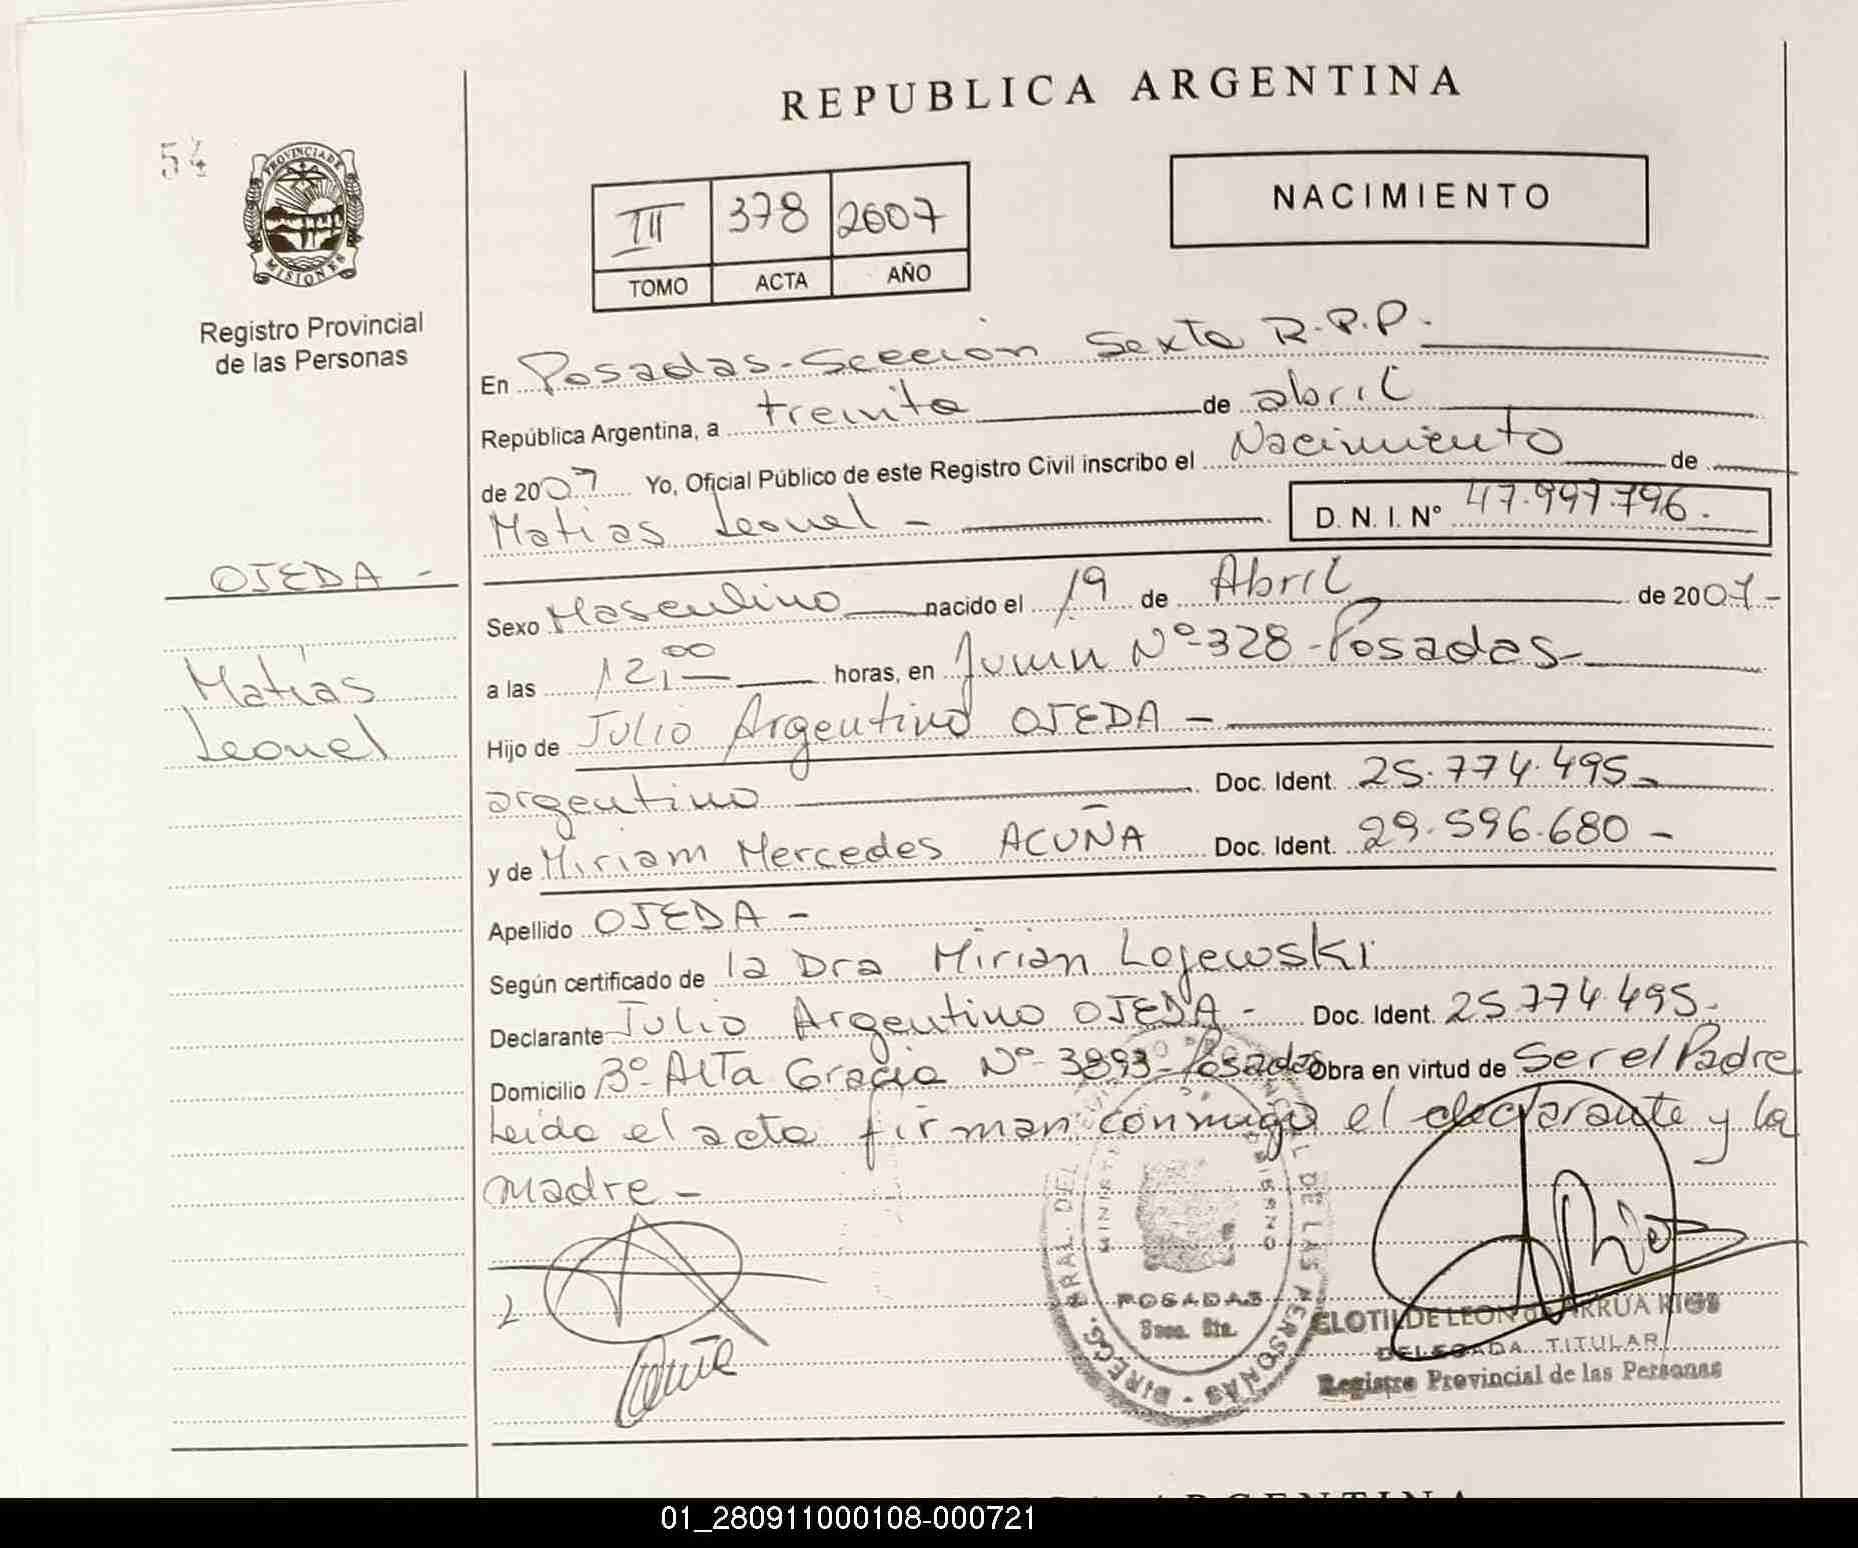 REPUBLICA ARGENTINA
54
PROVINCIA DE
MISIONES
Registro Provincial
de las Personas
III 378 2007
TOMO ACTA AÑO
NACIMIENTO
En Posadas-Sección Sexta R.P.P.
República Argentina, a treinta de abril
de 2007 Yo, Oficial Público de este Registro Civil inscribo el Nacimiento de
Matias Leonel - D. N. I. N° 47.997.796.
OJEDA -
Matías
Leonel
Sexo Masculino nacido el 19 de Abril de 2007-
a las 12,00 horas, en Junin Nº-328-Posadas-
Hijo de Julio Argentino OJEDA -
argentino Doc. Ident. 25.774.495-
y de Miriam Mercedes ACUÑA Doc. Ident. 29.596.680 -
Apellido OJEDA -
Según certificado de la Dra Mirian Lojewski
Declarante Julio Argentino OJEDA - Doc. Ident. 25.774.495-
Domicilio Bº-Alta Gracia Nº-3893-Posadas Obra en virtud de Ser el Padre
Leida el acta firman conmigo el declarante y la
madre -
DIRECG. GRAL. DEL DE LAS PERSONAS
POSADAS
Secc. 6ta.
CLOTILDE LEON de ARRUA RIOS
DELEGADA TITULAR
Registro Provincial de las Personas
01_280911000108-000721